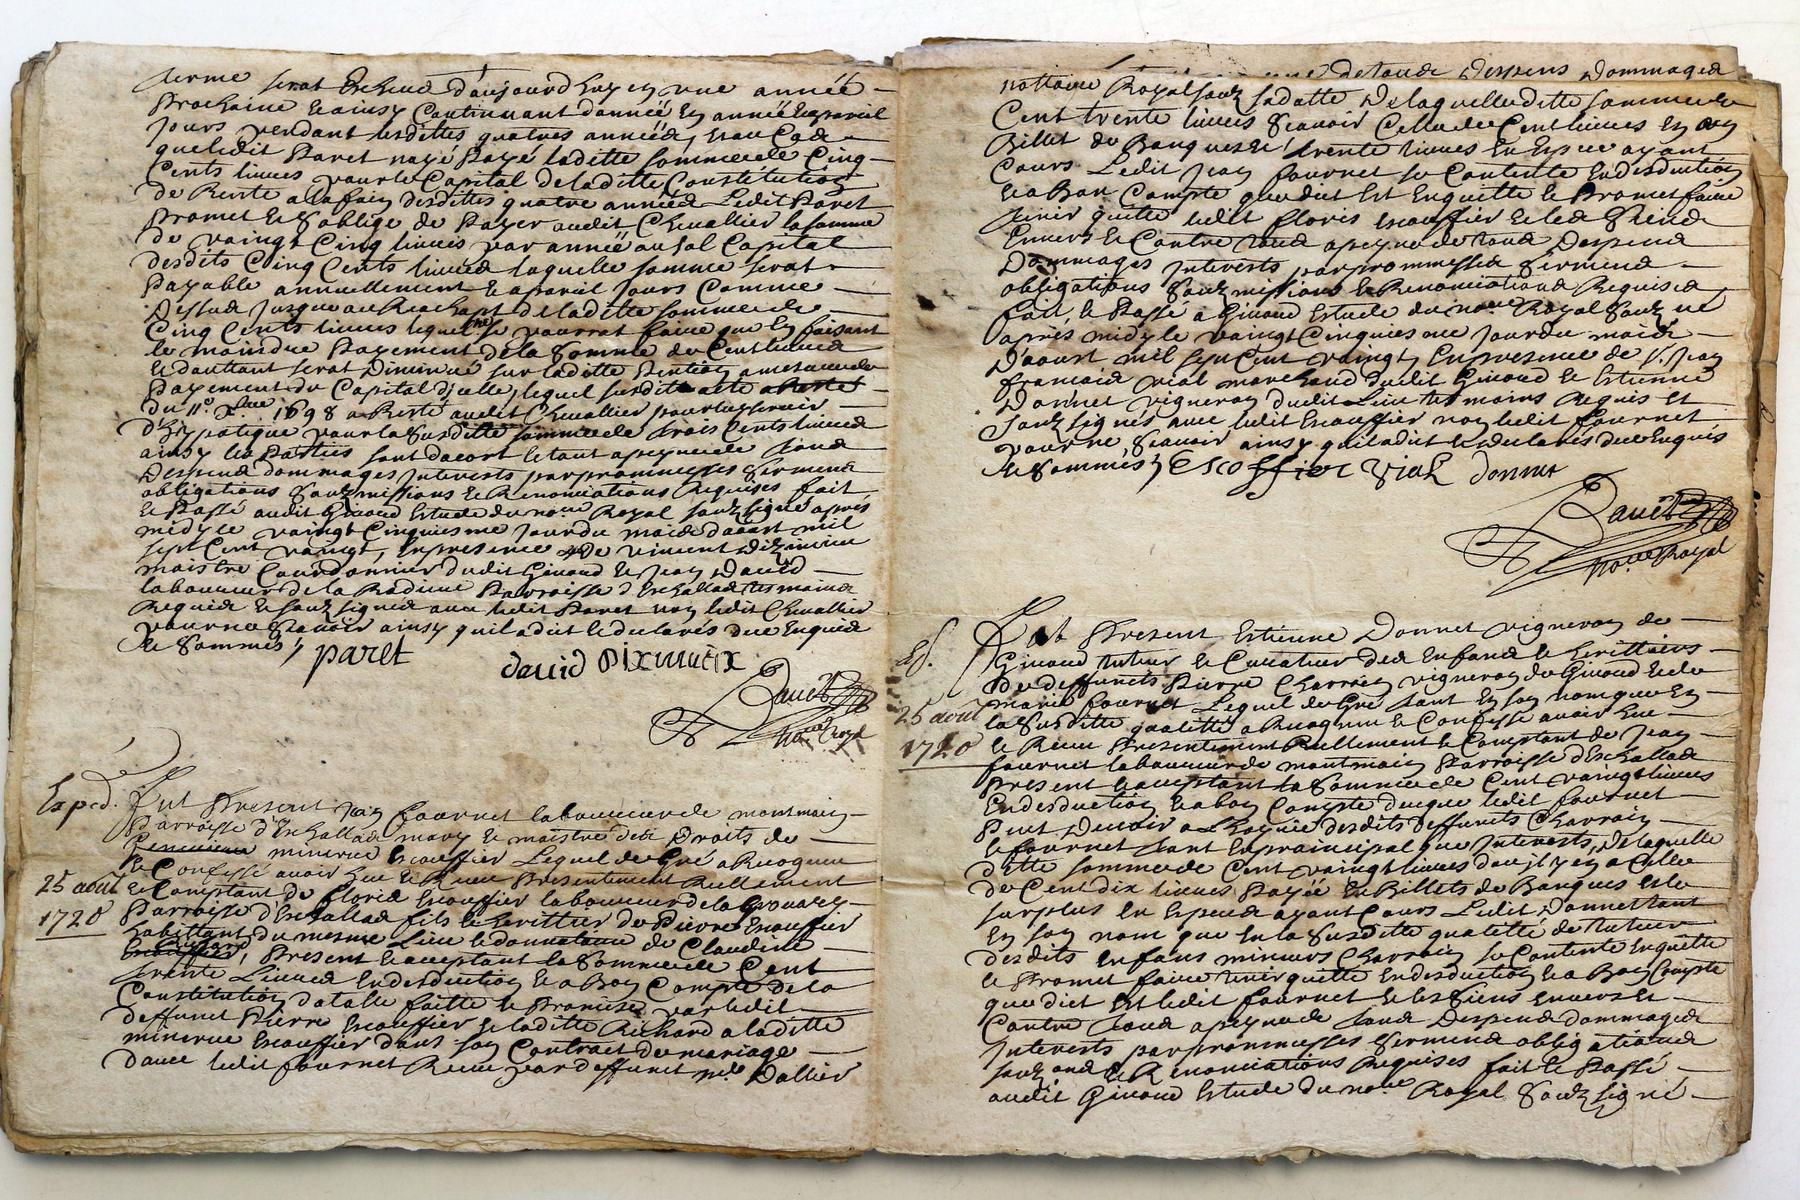 terme serat Escheud d'aujourdhuy en une année
prochaine & ainsy Continuant dannée En année En pareil
jours pendant lesdittes quatres années, & au Cas
que ledit paret naye payé laditte somme de Cinq
Cents livres pour le Capital de laditte Constitution
de Rente a la fain desdittes quatre années Ledit paret
promet & soblige de payer audit Chevallier la somme
de vaingt Cinq livres par année au sol Capital
desdits Cinq Cents livres laquelle somme serat
payable annuellement & a pareil jours Comme
dessus jusque au Reachapt de laditte somme de
Cinq Cents livres lequel se pourrat faire que En faisant
le moindre payement de la somme de Cent livres
& dauttant serat diminué sur laditte pention a mesure du
payement du Capital d'jcelle, lequel susdit acte
du 11e xbre 1698 a Resté audit Chevallier pour luy servir
d'hypotique pour la susditte somme de trois Cents livres
ainsy les parties sont dacort & tout a peyne de tous
despens dommages jnterests par prommesses serments
obligations soubzmissions & Renonciations Requises fait
& passé audit Givord Estude du nore Royal soubzsigné apres
midy le vaingt Cinquiesme jour du mois daoust mil
sept Cent vaingt, En presence de vincent diximieu
maistre Courdonnier dudit Givord & Jean David
laboureur de la Rodiere parroisse d'Eschallas tesmoins
Requis & soubzsignés avec ledit paret non ledit Chevallier
pour ne scavoir ainsy qu'il a dit & declarés due Enquis
& sommés,
paret
david Diximieix
Daueth
nore Royal
Exped.
25 août
1720
Fut present Jean fournel laboureur de montmain
parroisse d'Eschallas mary & maistre des droits de
minerve Escoffier Lequel de gré a Recognu
& Confessé avoir Eue & Receu presentement Reellement
& Comptant de floris Escoffier laboureur de la
parroisse d'Eschallas fils & herittier de pierre Escoffier
habittant du mesme Lieu & donnataire de Claudine
Richard, present & acceptant la somme de Cent
trente Livres En desduction & a bon Compte de la
Constitution dotalle faitte & promise par ledit
deffunct pierre Escoffier & laditte Richard a laditte
minerve Escoffier dans son Contract de mariage
davec ledit fournel Receu par deffunct me Dallier
nottaire Royal soubz sa datte, de laquelle ditte somme de
Cent trente livres scavoir Celle de Cent livres En un
Billet de Banques & trente livres En Espece ayant
Cours Ledit Jean fournel se Contente En desduction
& a Bon Compte que dict Est Enquitte & promet faire
tenir quitte ledit floris Escoffier & les siens
Envers & Contre tous a peyne de tous despens
dommages jnterests par prommesses serments
obligations soubzmissions & Renonciations Requises
fait & passé a Givord Estude du nore Royal soubzsigné
apres midy le vaingt Cinquiesme jour du mois
d'aoust mil sept Cent vaingt, En presence de sr Jean
francois vial marchand dudit Givord & Estienne
Donnet vigneron dudit Lieu tesmoins Requis et
soubzsignés avec ledit Escoffier non ledit fournel
pour ne scavoir ainsy quil a dit & declarés due Enquis
& sommés,
Escoffier Vial donnet
Daueth
nore Royal
Ex.
25 août
1720
Fut present Estienne Donnet vigneron de
Givord tuteur & Curateur des Enfans & herittiers
de deffuncts pierre Charroin vigneron de Givord & de
marie fournel Lequel de gré tant En son nom que En
la susditte qualitté a Recognu & Confesse avoir Eue
& Receu presentement Reellement & Comptant de Jean
fournel laboureur de montmain parroisse d'Eschallas
present & acceptant la somme de Cent vaingt livres
En desduction & a bon Compte de ce que ledit fournel
peut devoir a lhoyrie desdits deffuncts Charroin
& fournel tant En prainsipal que jnterests, de laquelle
ditte somme de Cent vaingt livres dou il y En a Celle
de Cent dix livres payée En Billets de Banques & le
surplus En Espece ayant Cours Ledit Donnet tant
En son nom que En la susditte qualitte de tuteur
desdits Enfans mineurs Charroin se Contente Enquitte
& promet faire tenir quitte En desduction & a Bon Compte
que dict Est ledit fournel & les siens envers &
Contre tous a peyne de tous despens dommages
jnterests par prommesses serments obligations
soubz ons & Renonciations Requises fait & passé
audit Givord Estude du nore Royal soubzsigné